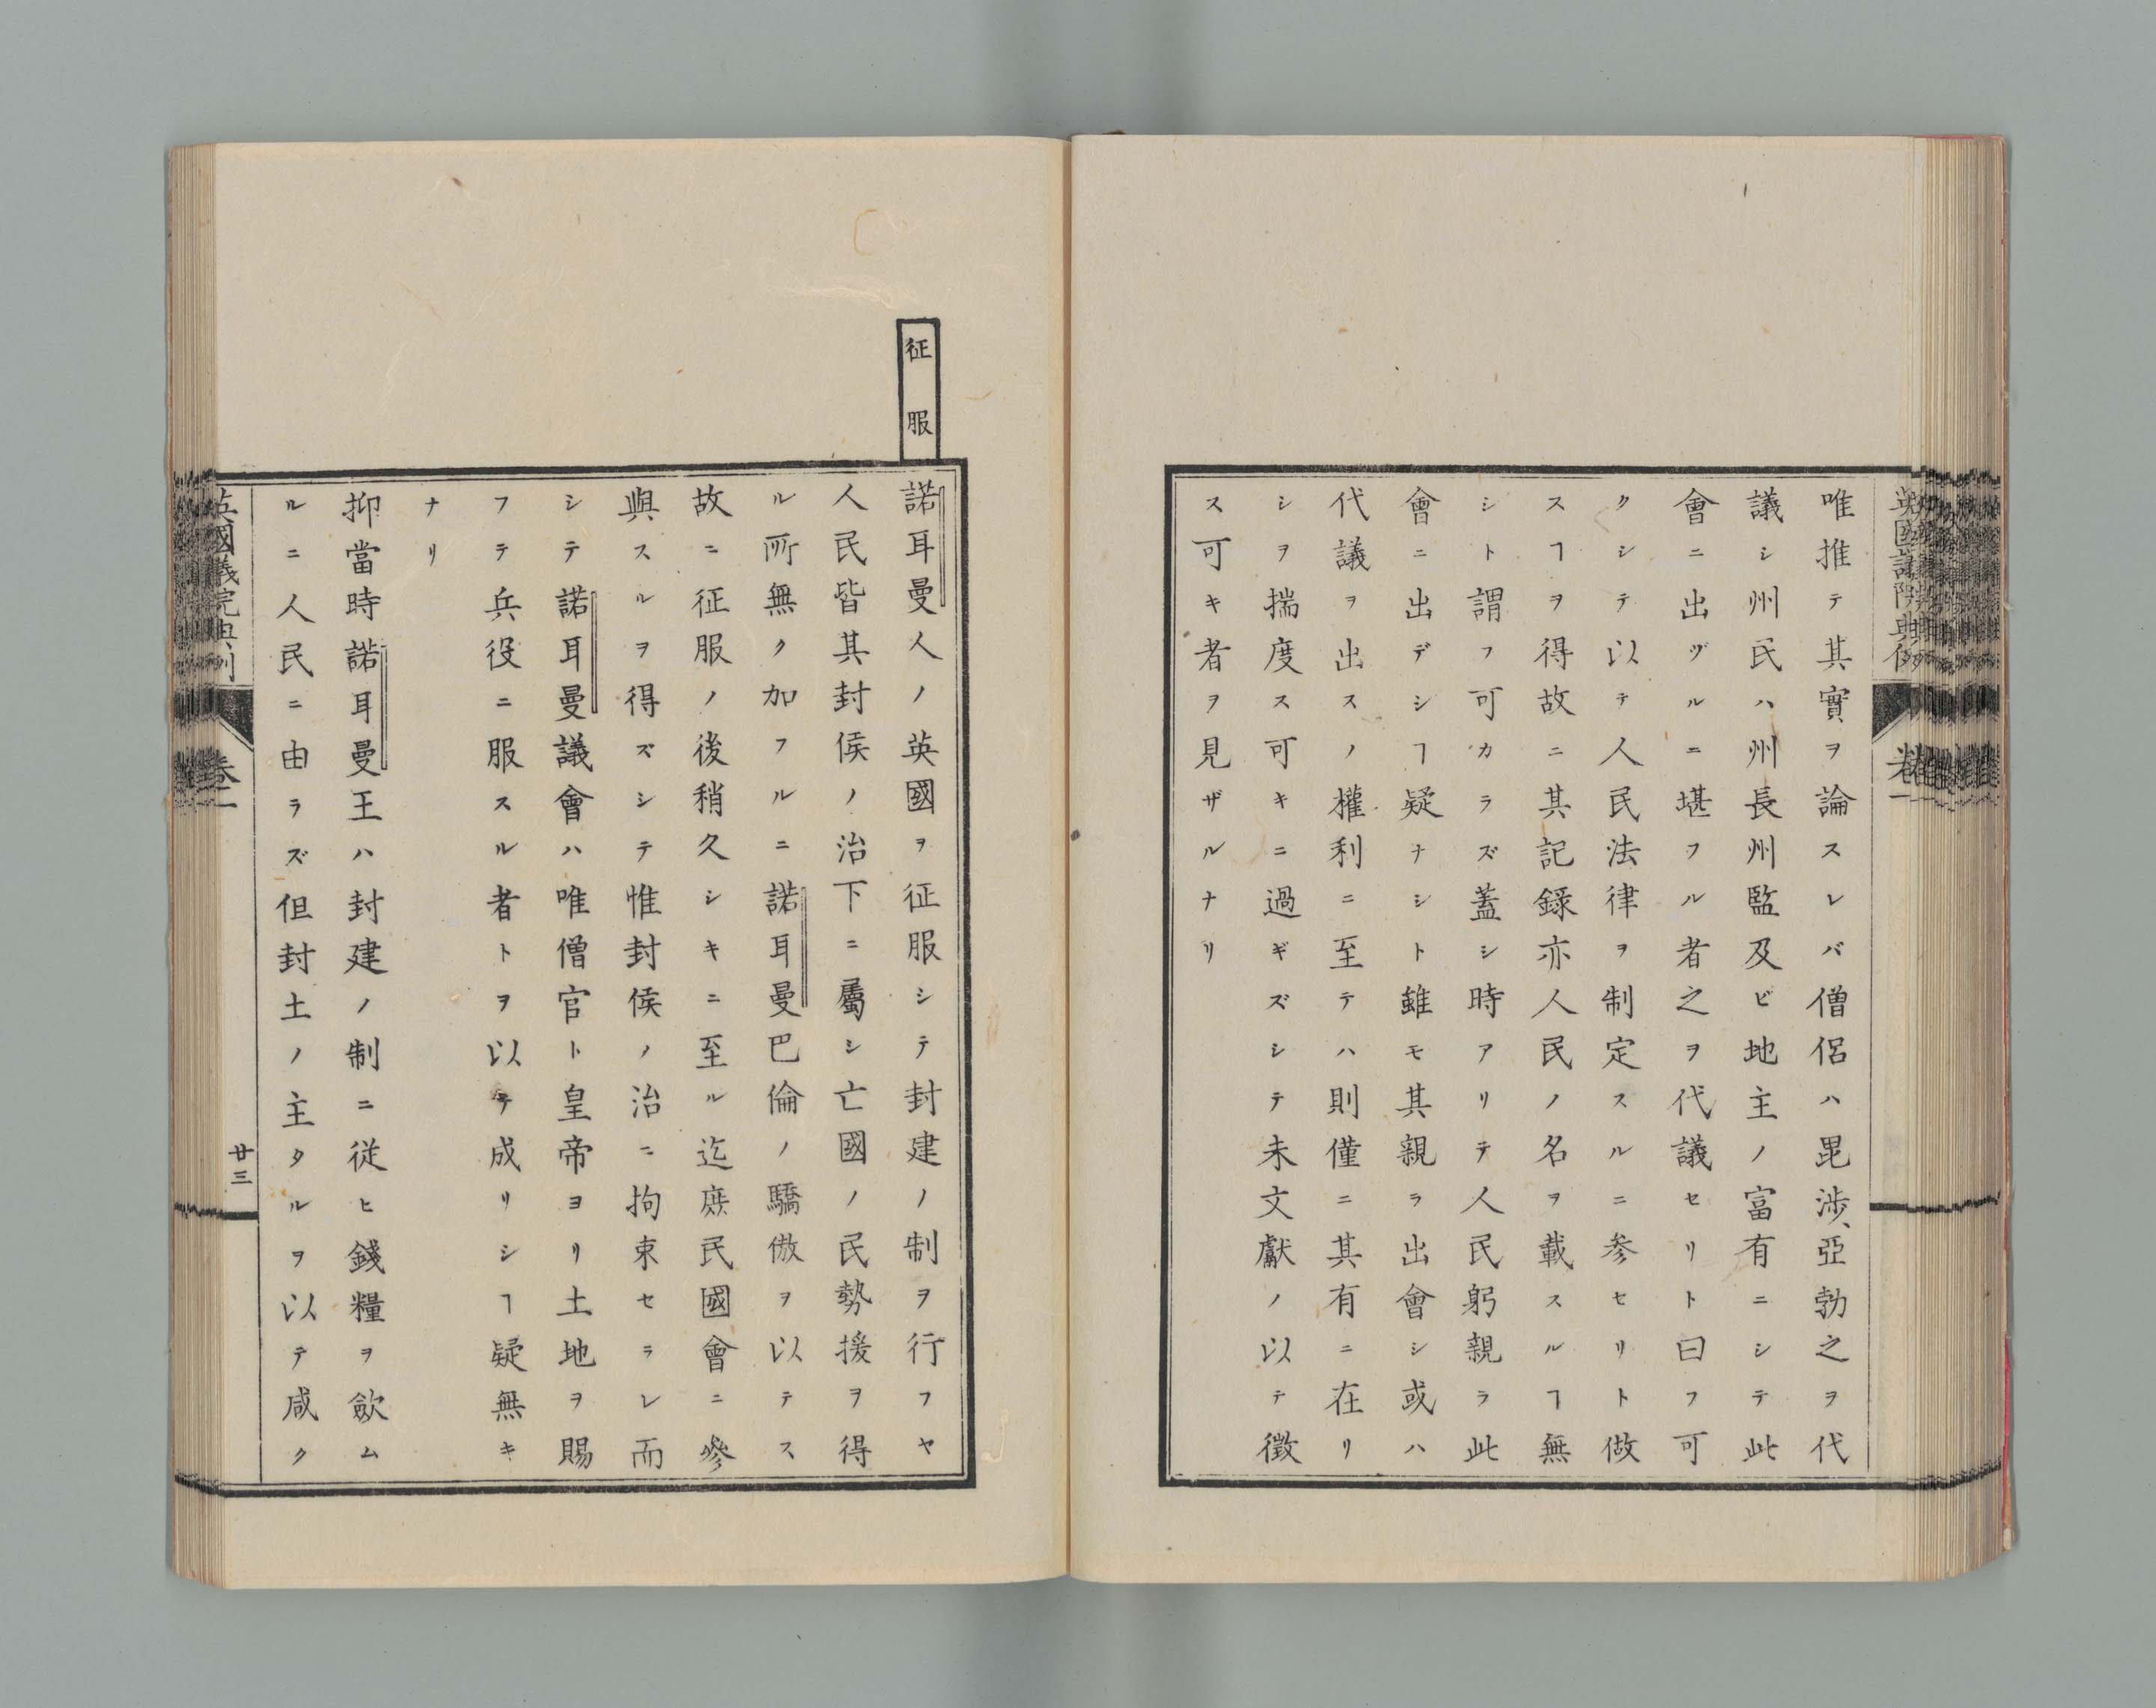 唯推テ其實ヲ論スレバ僧侶ハ毘渉、亞勃之ヲ代
議シ州民ハ州長州監及ビ地主ノ富有ニシテ此
會ニ出ヅルニ堪フル者之ヲ代議セリト曰フ可
クシテ以テ人民法律ヲ制定スルニ参セリト做
スヿヲ得故ニ其記録亦人民ノ名ヲ載スルヿ無
シト謂フ可カラズ蓋シ時アリテ人民躬親ラ此
會ニ出デシヿ疑ナシト雖モ其親ラ出會シ或ハ
代議ヲ出スノ權利ニ至テハ則僅ニ其有ニ在リ
シヲ揣度ス可キニ過ギズシテ未文獻ノ以テ徴
ス可キ者ヲ見ザルナリ
征服
諾耳曼人ノ英國ヲ征服シテ封建ノ制ヲ行フヤ
人民皆其封侯ノ治下ニ屬シ亡國ノ民勢援ヲ得
ル所無ク加フルニ諾耳曼巴倫ノ驕傲ヲ以テス
故ニ征服ノ後稍久シキニ至ル迄庶民國會ニ參
與スルヲ得ズシテ惟封侯ノ治ニ拘束セラレ而
シテ諾耳曼議會ハ唯僧官ト皇帝ヨリ土地ヲ賜
フテ兵役ニ服スル者トヲ以テ成リシヿ疑無キ
ナリ
抑當時諾耳曼王ハ封建ノ制ニ従ヒ錢糧ヲ歛ム
ルニ人民ニ由ラズ但封土ノ主タルヲ以テ咸ク
英國議院典例
卷一
廿三